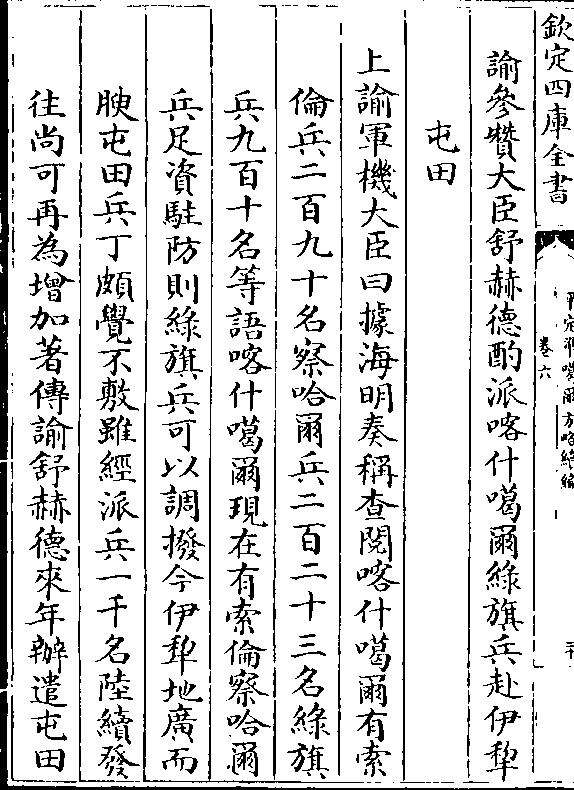 欽定四庫全書
平定準噶爾方略續編
卷六
諭參贊大臣舒赫德酌派喀什噶爾綠旗兵赴伊犂
屯田
上諭軍機大臣曰據海明奏稱查閱喀什噶爾有索
倫兵二百九十名察哈爾兵二百二十三名綠旗
兵九百十名等語喀什噶爾現在有索倫察哈爾
兵足資駐防則綠旗兵可以調撥今伊犂地廣而
腴屯田兵丁頗覺不敷雖經派兵一千名陸續發
往尚可再為增加著傳諭舒赫德來年辦遣屯田